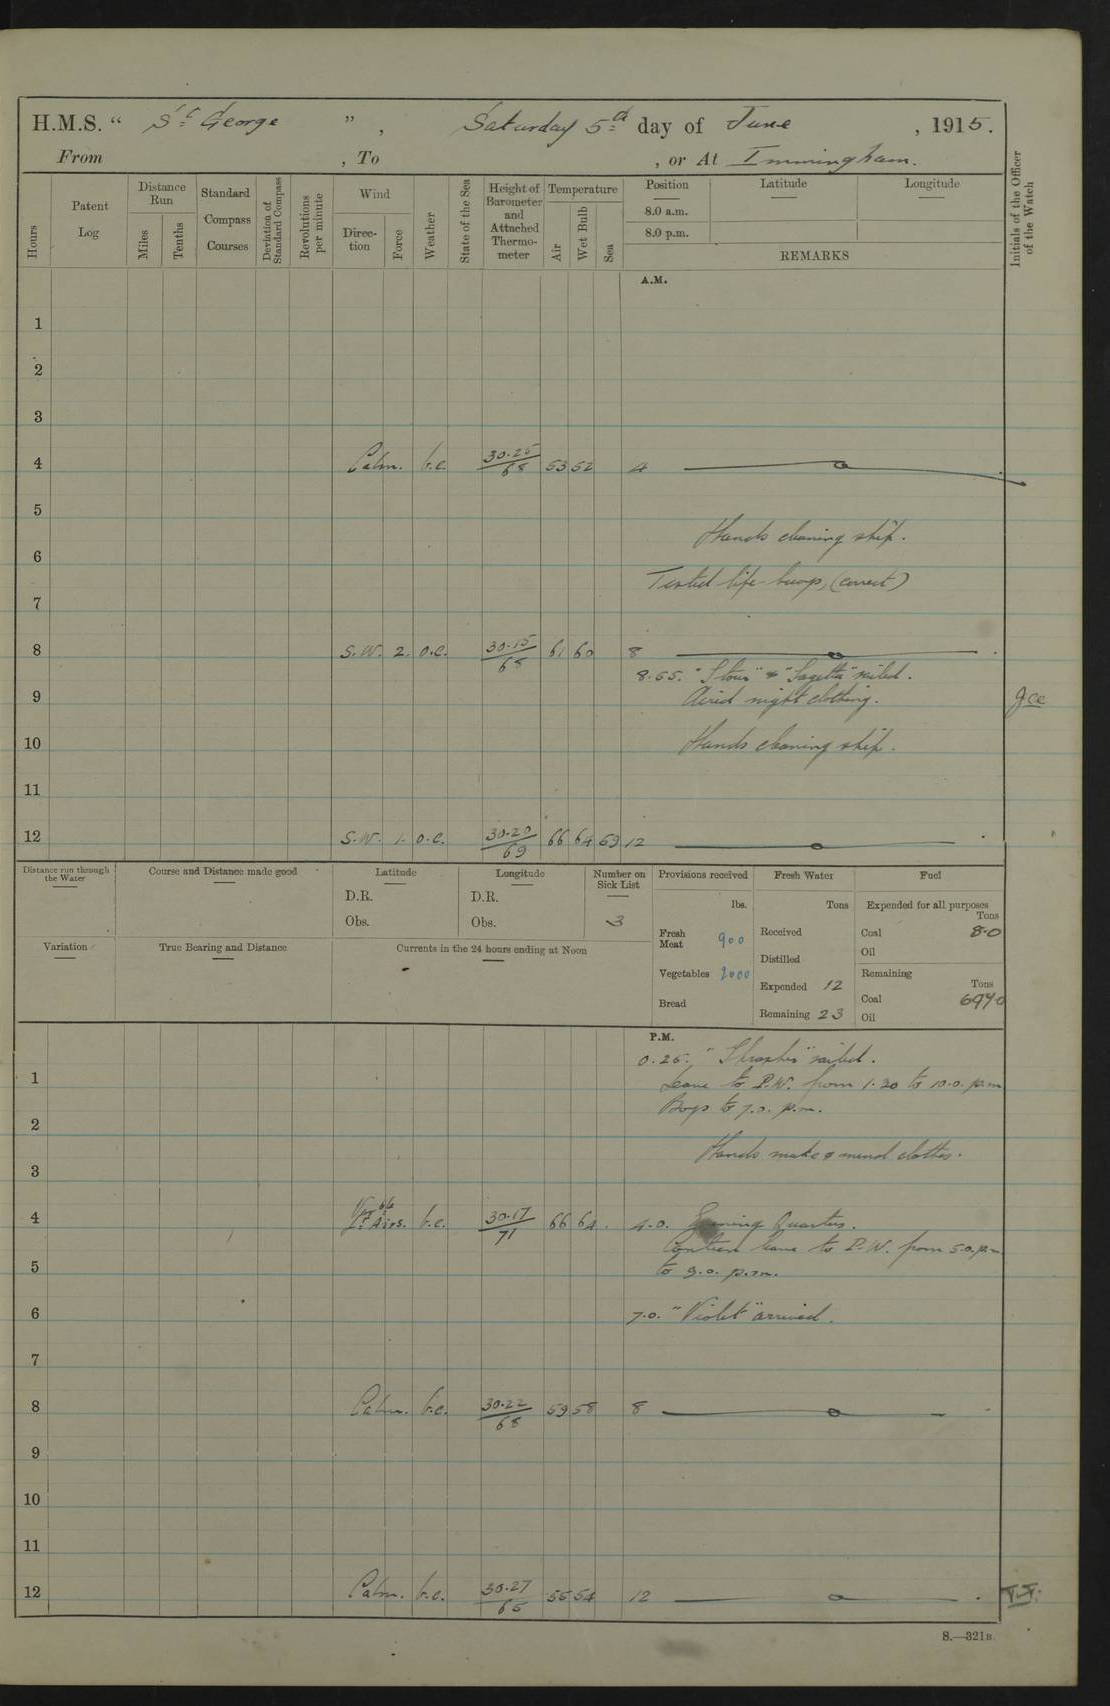 H.M.S. “ St George ” , Saturday 5th day of June , 1915.
From , To , or At Immingham.
Hours
Patent Log
Distance Run
Miles
Tenths
Standard Compass Courses
Deviation of Standard Compass
Revolutions per minute
Wind
Direction
Force
Weather
State of the Sea
Height of Barometer and Attached Thermometer
Temperature
Air
Wet Bulb
Sea
Position
8.0 a.m.
8.0 p.m.
Latitude
Longitude
REMARKS
Initials of the Officer of the Watch
A.M.
1
2
3
4 Calm. b.c. 30.25/68 53 52 4
5
Hands cleaning ship.
6
Tested life-buoys, (correct)
7
8 S.W. 2. o.c. 30.15/68 61 60 8
8.55. "Stour" & "Sagitta" sailed.
9 Aired night clothing.
10 Hands cleaning ship.
11
12 S.W. 1. o.c. 30.20/69 66 64 12
Distance run through the Water
Course and Distance made good
Latitude
D.R.
Obs.
Longitude
D.R.
Obs.
Number on Sick List
3
Provisions received
lbs.
Fresh Meat 900
Vegetables 2000
Bread
Fresh Water
Tons
Received
Distilled
Expended 12
Remaining 23
Fuel
Expended for all purposes
Tons
Coal 8.0
Oil
Remaining
Tons
Coal
Oil
Variation
True Bearing and Distance
Currents in the 24 hours ending at Noon
P.M.
0.25. sailed.
1 Leave to P.W. from 1.30 to 10.0. p.m
Boys to 7.0. p.m.
2
Hands make & mend clothes.
3
4 Vrble Lt Airs. b.c. 30.17/71 66 64. 4.0. Evening Quarters.
leave to P.W. from 5.0.p.m
5 to 9.0. p.m.
6 7.0. "Violet" arrived.
7
8 Calm. b.c. 30.22/68 59 58 8
9
10
11
12 Calm. b.c. 30.27/65 55 54 12
S.—321B.